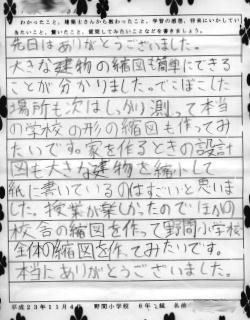 わかったこと、建築士さんから教わったこと、学習の感想、将来にいかしていき
たいこと、驚いたこと、質問してみたいことなどを書きましょう。
先日はありがとうございました。
大きな建物の縮図も簡単にできる
ことが分かりました。でこぼこした
場所も次はしっかり測って本当
の学校の形の縮図も作ってみ
たいです。家を作るときの設計
図も大きな建物を縮小して
紙に書いているのはすごいと思いま
した。授業が楽しかったのでほかの
校舎の縮図を作って野間小学校
全体の縮図を作てみたいです。
本当にありがとうございました。
平成23年11月4 野間小学校 6年 組 名前